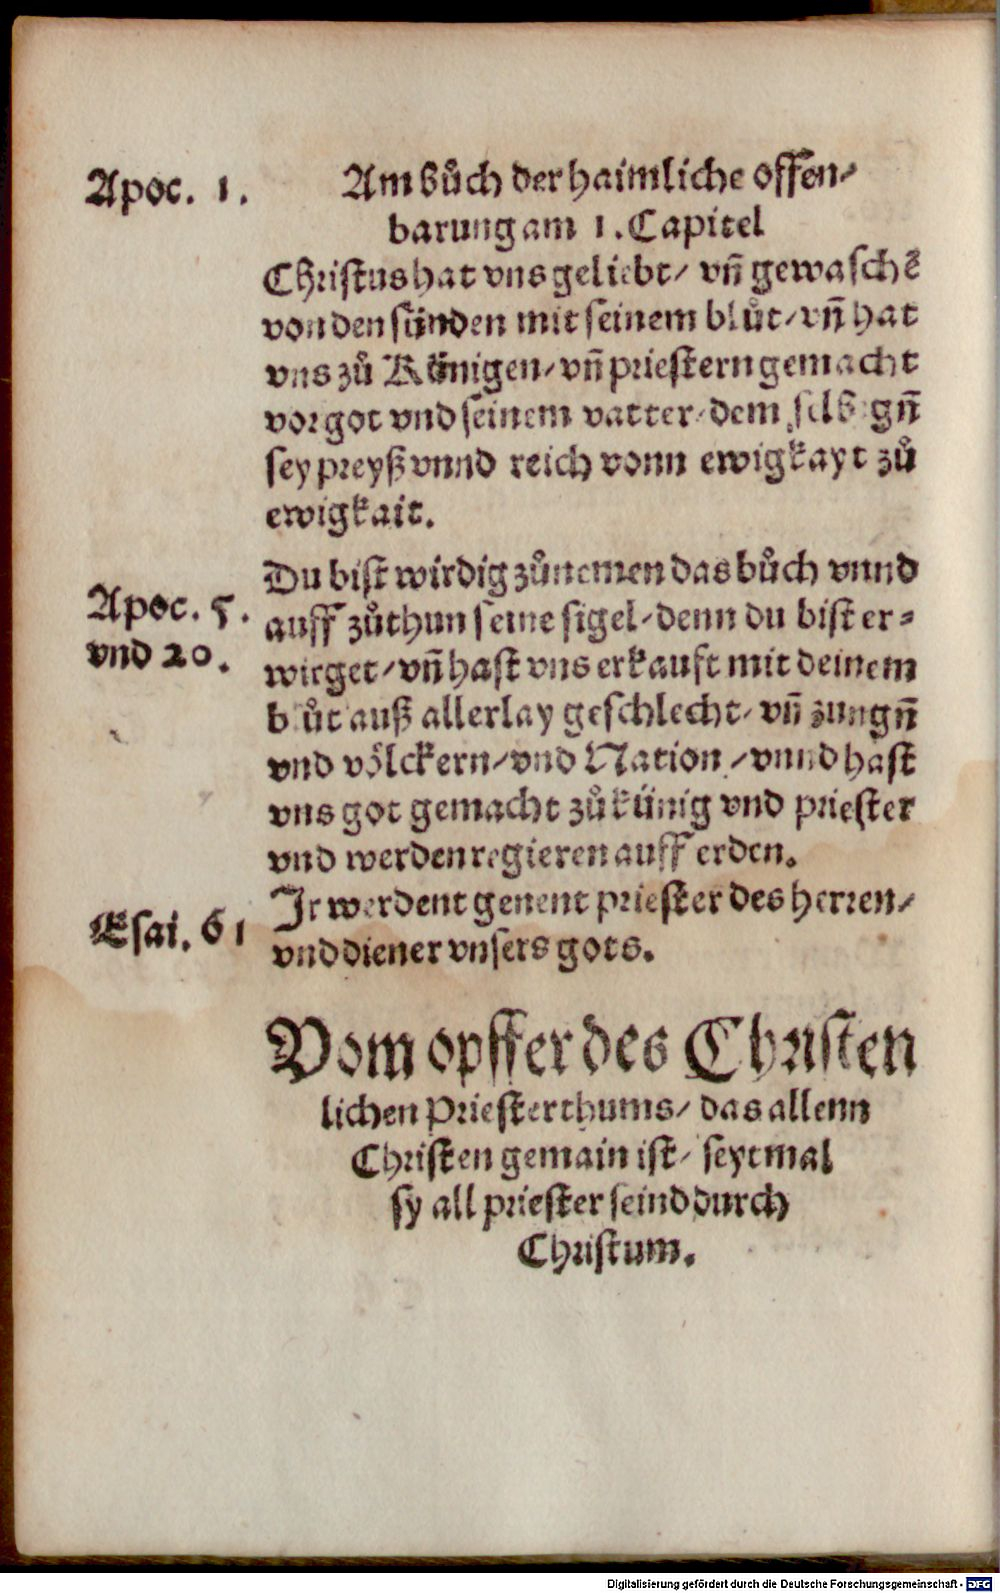 Apoc. 1.
Am bůch der haimliche offen/
barung am 1. Capitel
Christus hat vns geliebt/ vñ gewaschẽ
von den sünden mit seinem blůt/ vñ hat
vns zů Königen/ vñ priestern gemacht
vor got vnd seinem vatter/ dem selbigñ
sey preyß vnnd reich vonn ewigkayt zů
ewigkait.
Apoc. 5.
vnd 20.
Du bist wirdig zůnemen das bůch vnnd
auff zůthun seine sigel/ denn du bist er⸗
wirget/ vñ hast vns erkauft mit deinem
blůt auß allerlay geschlecht/ vñ zungñ
vnd völckern/ vnd Nation/ vnnd hast
vns got gemacht zů künig vnd priester
vnd werden regieren auff erden.
Esai. 61
Ir werdent genent priester des herren/
vnd diener vnsers gots.
Vom opffer des Christen
lichen Priesterthums/ das allenn
Christen gemain ist/ seytmal
sy all priester seind durch
Christum.
Digitalisierung gefördert durch die Deutsche Forschungsgemeinschaft - DFG